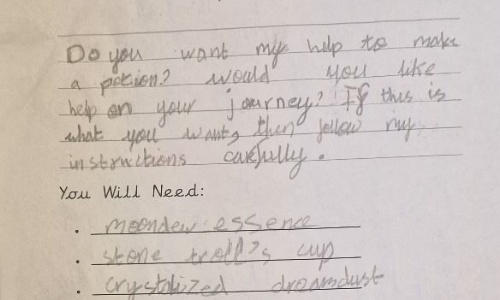 Do you want my help to make
a potion? would you like
help on your journey? If this is
what you want, then follow my
instructions carefully.
You Will Need:
• moondew essence
• stone troll's cup
• crystalized dreamdust